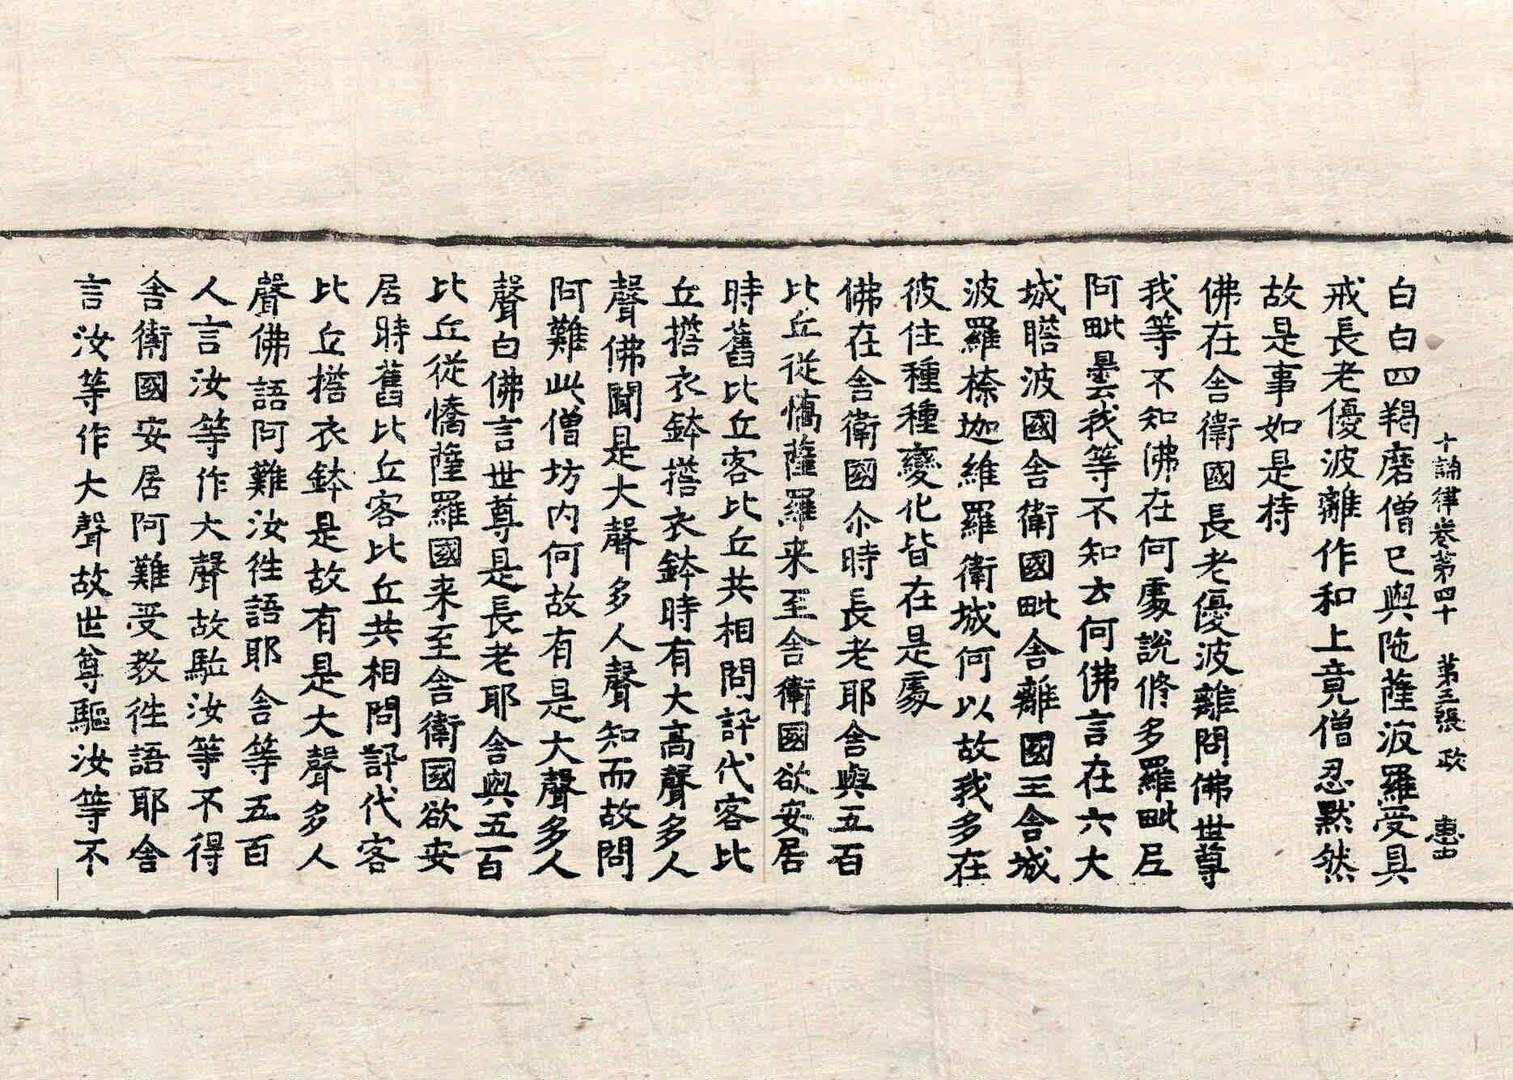 十誦律卷第四十　第五張　政　惠
白白四羯磨僧已與陁薩波羅受具
戒長老優波離作和上竟僧忍默然
故是事如是持
佛在舍衛國長老優波離問佛世尊
我等不知佛在何處說脩多羅毗尼
阿毗曇我等不知云何佛言在六大
城瞻波國舍衛國毗舍離國王舍城
波羅㮈迦維羅衛城何以故我多在
彼住種種變化皆在是處
佛在舍衛國尒時長老耶舍與五百
比丘從憍薩羅来至舍衛國欲安居
時舊比丘客比丘共相問訊代客比
丘擔衣鉢擔衣鉢時有大高聲多人
聲佛聞是大聲多人聲知而故問
阿難此僧坊内何故有是大聲多人
聲白佛言世尊是長老耶舍與五百
比丘從憍薩羅國来至舍衛國欲安
居時舊比丘客比丘共相問訊代客
比丘擔衣鉢是故有是大聲多人
聲佛語阿難汝徃語耶舍等五百
人言汝等作大聲故駈汝等不得
舍衛國安居阿難受教徃語耶舍
言汝等作大聲故世尊驅汝等不